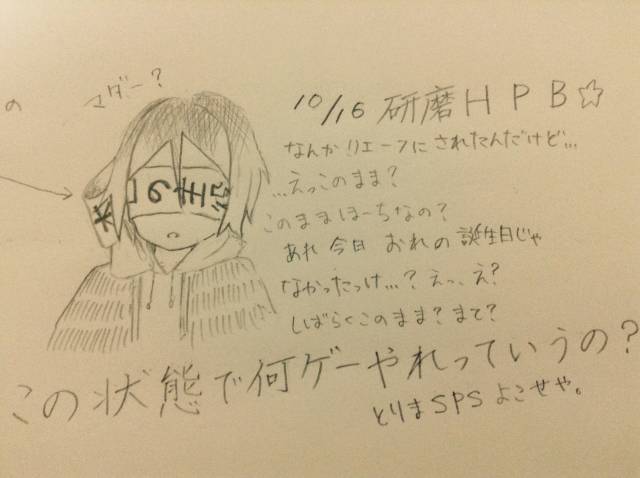 の
マダー?
10/16 研磨HPB☆
なんかリエーフにされたんだけど…
…えっこのまま?
このままほーちなの?
あれ今日 おれの誕生日じゃ
なかったっけ…?えっ、え?
しばらくこのまま?まて?
この状態で何ゲーやれっていうの?
とりまSPSよこせや。
本日の主役